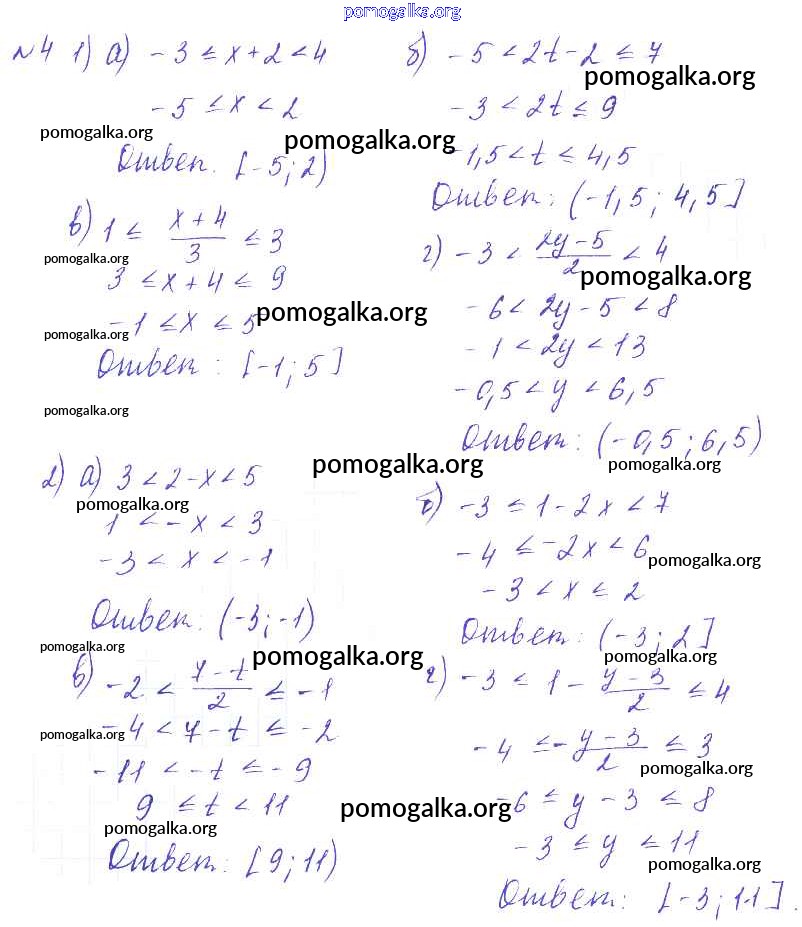 pomogalka.org
№4 1) а) -3 ≤ x+2 < 4
-5 ≤ x < 2
pomogalka.org
Ответ. [-5; 2)
б) -5 < 2t-2 ≤ 7
pomogalka.org
-3 < 2t ≤ 9
pomogalka.org
-1,5 < t ≤ 4,5
Ответ: (-1,5; 4,5]
в) 1 ≤ (x+4)/3 ≤ 3
pomogalka.org
3 ≤ x+4 ≤ 9
-1 ≤ x ≤ 5
pomogalka.org
pomogalka.org
Ответ: [-1; 5]
pomogalka.org
г) -3 < (2y-5)/2 < 4
pomogalka.org
-6 < 2y-5 < 8
-1 < 2y < 13
-0,5 < y < 6,5
Ответ: (-0,5; 6,5)
pomogalka.org
pomogalka.org
2) а) 3 < 2-x < 5
pomogalka.org
1 < -x < 3
-3 < x < -1
Ответ: (-3; -1)
pomogalka.org
б) -3 ≤ 1-2x < 7
-4 ≤ -2x < 6
pomogalka.org
-3 < x ≤ 2
Ответ: (-3; 2]
pomogalka.org
pomogalka.org
в) -2 < (7-t)/2 ≤ -1
-4 < 7-t ≤ -2
pomogalka.org
-11 < -t ≤ -9
9 ≤ t < 11
pomogalka.org
pomogalka.org
Ответ: [9; 11)
г) -3 < 1 - (y-3)/2 ≤ 4
-4 ≤ -(y-3)/2 ≤ 3
pomogalka.org
-6 ≤ y-3 ≤ 8
-3 ≤ y ≤ 11
pomogalka.org
Ответ: [-3; 11].